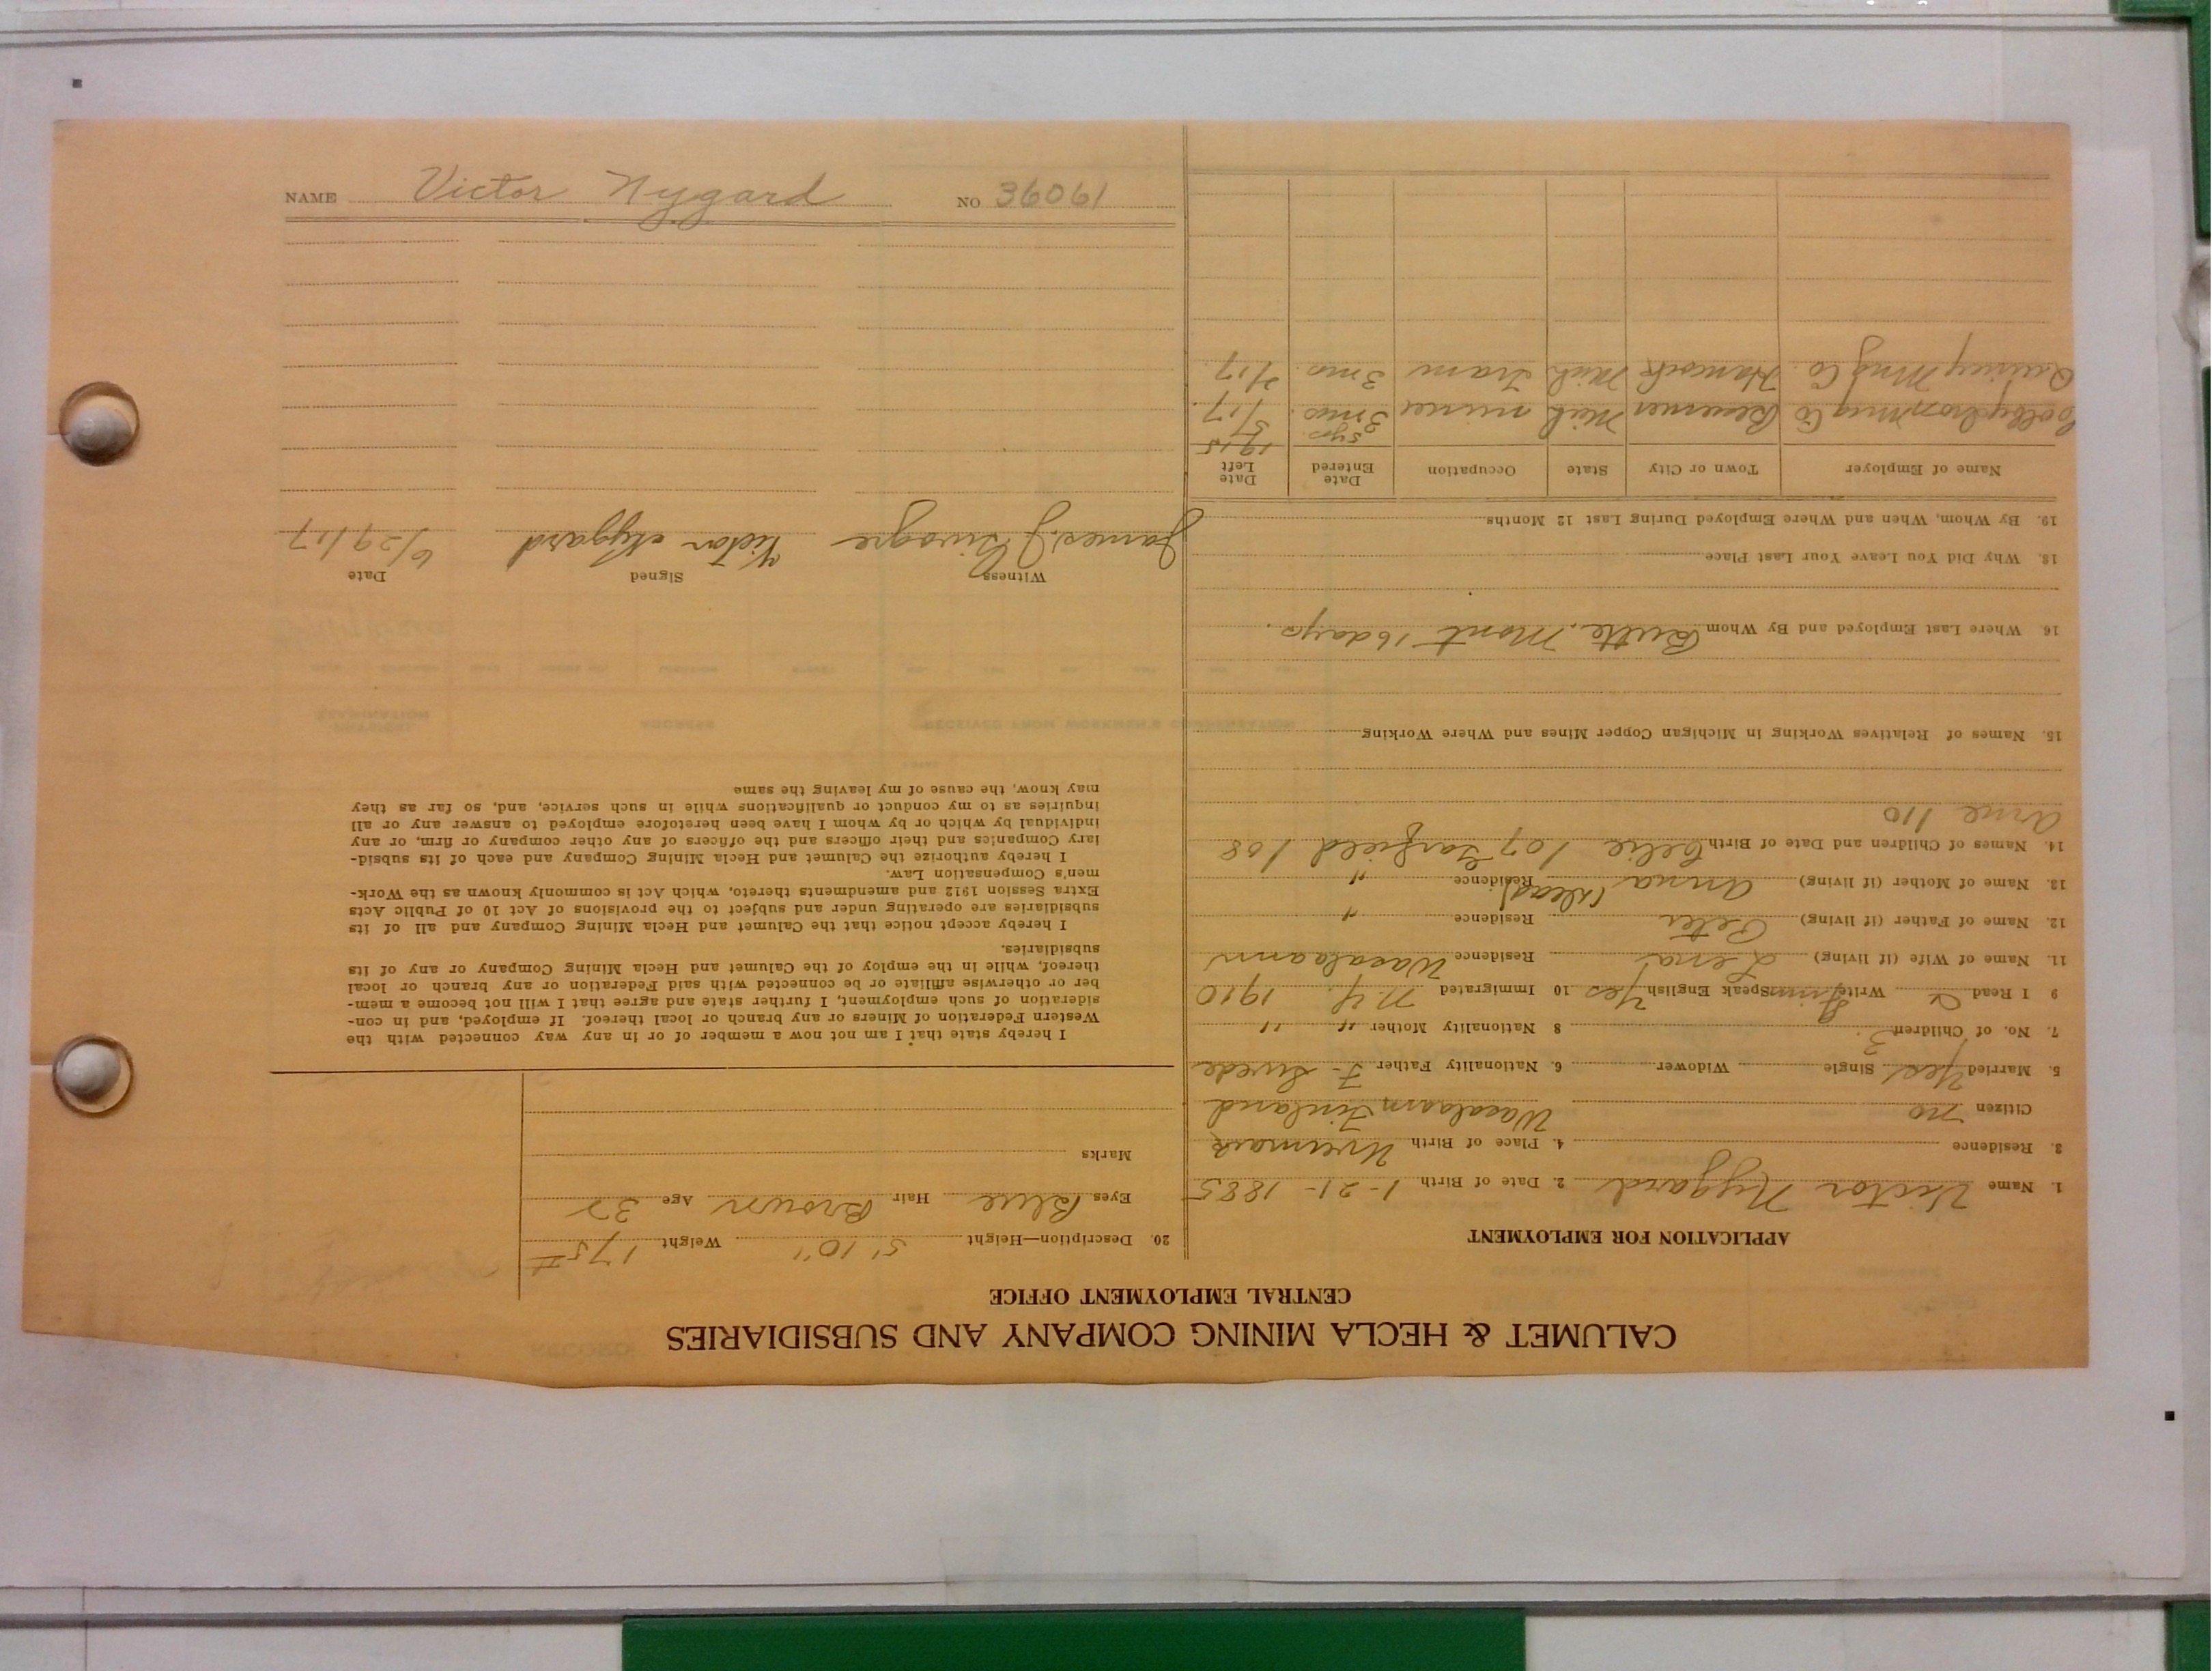 CALUMET & HECLA MINING COMPANY AND SUBSIDIARIES
CENTRAL EMPLOYMENT OFFICE
APPLICATION FOR EMPLOYMENT
1. Name Victor Nygard 2. Date of Birth 1-21-1885
3. Residence 4. Place of Birth
Citizen no Finland
5. Married Yes Single Widower 6. Nationality Father F-Swede
7. No. of Children 3 8 Nationality Mother " "
9 I Read Write Speak English Yes 10 Immigrated N.Y. 1910
11. Name of Wife (if living) Lena Residence
12. Name of Father (if living) Peter Residence "
13. Name of Mother (if living) Anna (dead) Residence "
14. Names of Children and Date of Birth 107 Garfield 108
Arne 110
15. Names of Relatives Working in Michigan Copper Mines and Where Working
16. Where Last Employed and By Whom Butte, Mont 16 days.
18. Why Did You Leave Your Last Place
19. By Whom, When and Where Employed During Last 12 Months
Name of Employer Town or City State Occupation Date Entered Date Left
5 yrs. 1915
Colby Iron Mng Co Bessemer Mich miner 3 mos 5/17.
Quincy Mng Co. Hancock Mich Tram 3 mos. 2/17.
20. Description—Height 5' 10" Weight 175#
Eyes Blue Hair Brown Age 32
Marks
I hereby state that I am not now a member of or in any way connected with the
Western Federation of Miners or any branch or local thereof. If employed, and in con-
sideration of such employment, I further state and agree that I will not become a mem-
ber or otherwise affiliate or be connected with said Federation or any branch or local
thereof, while in the employ of the Calumet and Hecla Mining Company or any of its
subsidiaries.
I hereby accept notice that the Calumet and Hecla Mining Company and all of its
subsidiaries are operating under and subject to the provisions of Act 10 of Public Acts
Extra Session 1912 and amendments thereto, which Act is commonly known as the Work-
men's Compensation Law.
I hereby authorize the Calumet and Hecla Mining Company and each of its subsid-
iary Companies and their officers and the officers of any other company or firm, or any
individual by which or by whom I have been heretofore employed to answer any or all
inquiries as to my conduct or qualifications while in such service, and, so far as they
may know, the cause of my leaving the same
Witness Signed Date
James J. Victor Nygard 6/29/17
NAME Victor Nygard NO 36061